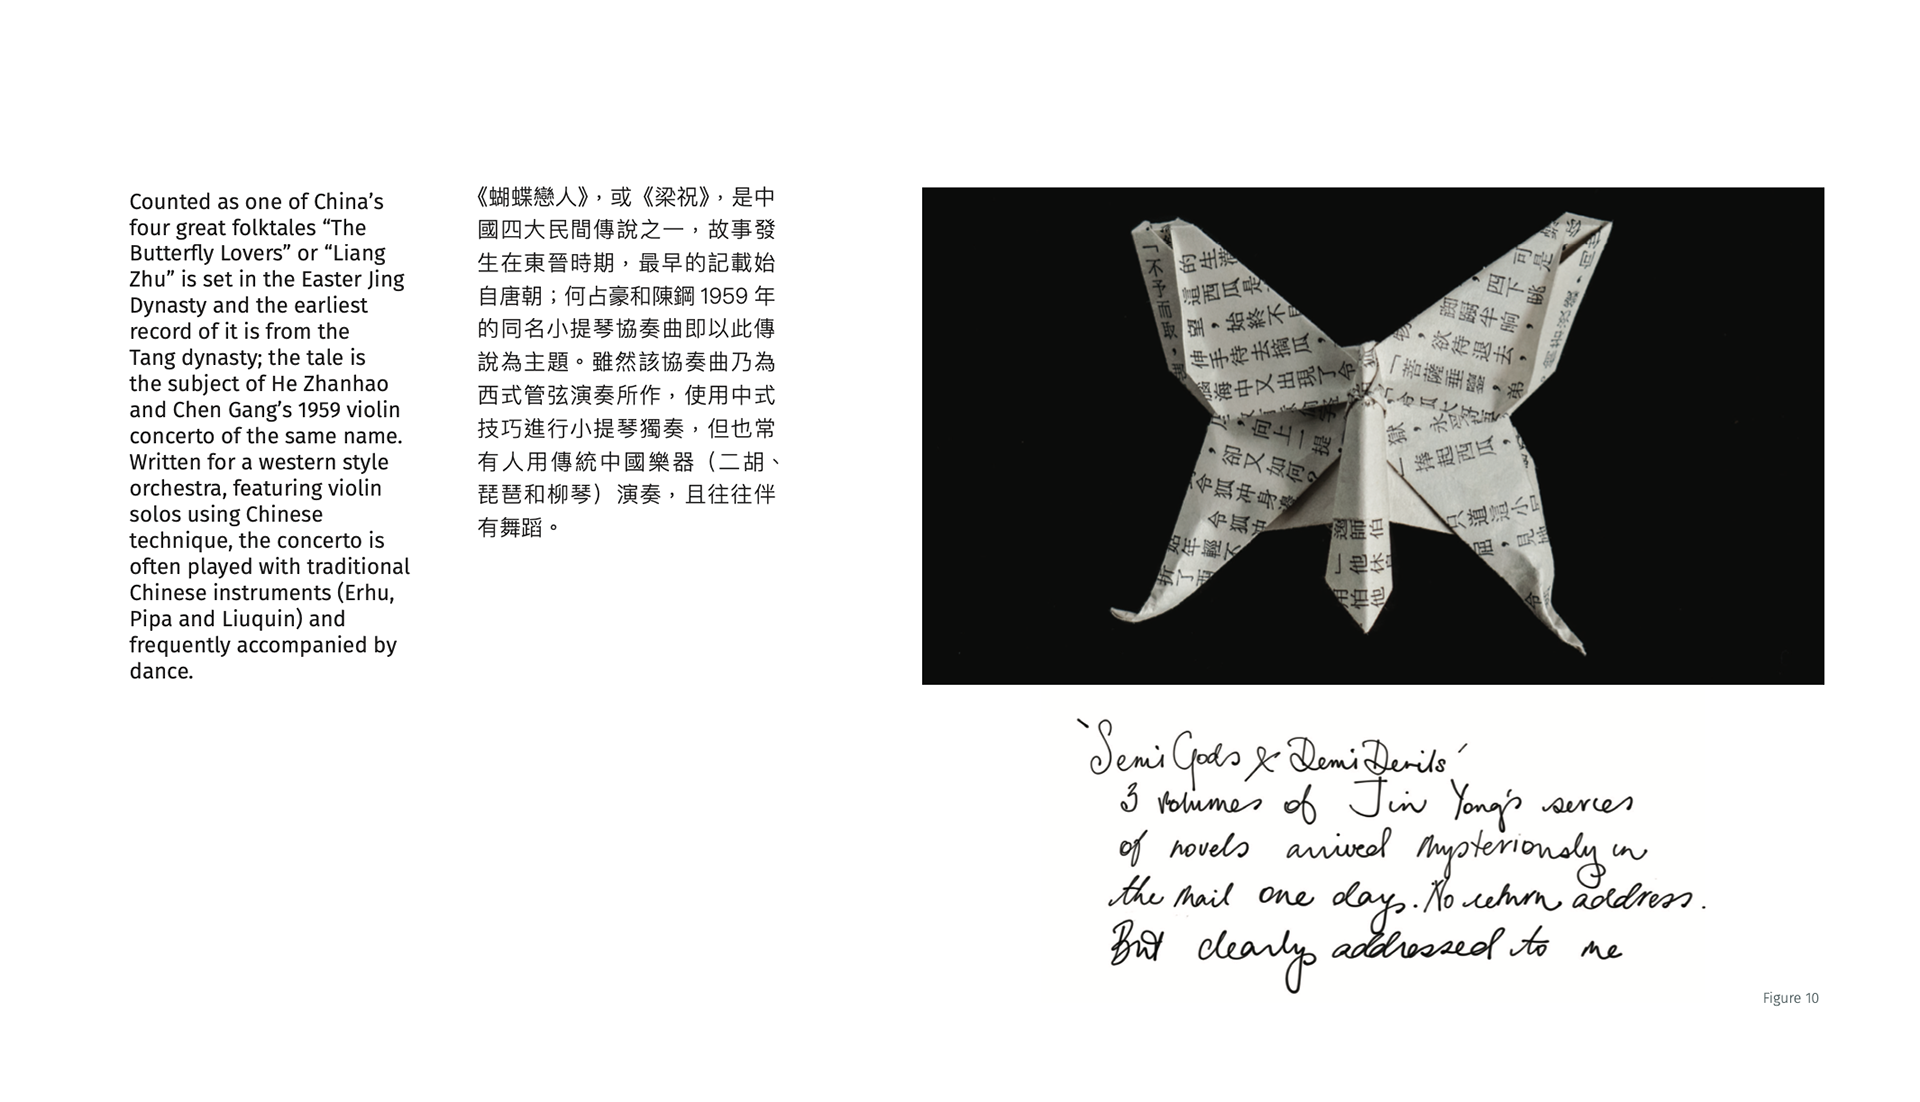 Counted as one of China’s
four great folktales “The
Butterfly Lovers” or “Liang
Zhu” is set in the Easter Jing
Dynasty and the earliest
record of it is from the
Tang dynasty; the tale is
the subject of He Zhanhao
and Chen Gang’s 1959 violin
concerto of the same name.
Written for a western style
orchestra, featuring violin
solos using Chinese
technique, the concerto is
often played with traditional
Chinese instruments (Erhu,
Pipa and Liuquin) and
frequently accompanied by
dance.
《蝴蝶戀人》，或《梁祝》，是中
國四大民間傳說之一，故事發
生在東晉時期，最早的記載始
自唐朝；何占豪和陳鋼 1959 年
的同名小提琴協奏曲即以此傳
說為主題。雖然該協奏曲乃為
西式管弦演奏所作，使用中式
技巧進行小提琴獨奏，但也常
有人用傳統中國樂器（二胡、
琵琶和柳琴）演奏，且往往伴
有舞蹈。
的生
這西瓜是
望，始終不
伸手待去摘瓜，
海中又出現了令
向上一提
，卻又如何？
令狐冲身邊
令狐冲
年輕不
折了西
可是
，四下眺
半晌，
，欲待退去，
「菩薩垂鑒，弟
獄，永受
捧起西瓜，
只道這小尼
屈，見她
邀師伯
「他休
用怕他
‘Semi Gods & Demi Devils’
3 volumes of Jin Yong's series
of novels arrived mysteriously in
the mail one day. No return address.
But clearly addressed to me
Figure 10